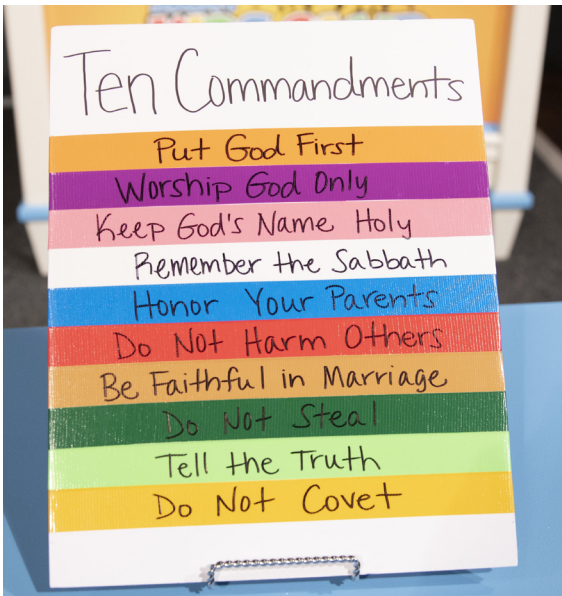 Ten Commandments
Put God First
Worship God Only
Keep God's Name Holy
Remember the Sabbath
Honor Your Parents
Do Not Harm Others
Be Faithful in Marriage
Do Not Steal
Tell the Truth
Do Not Covet